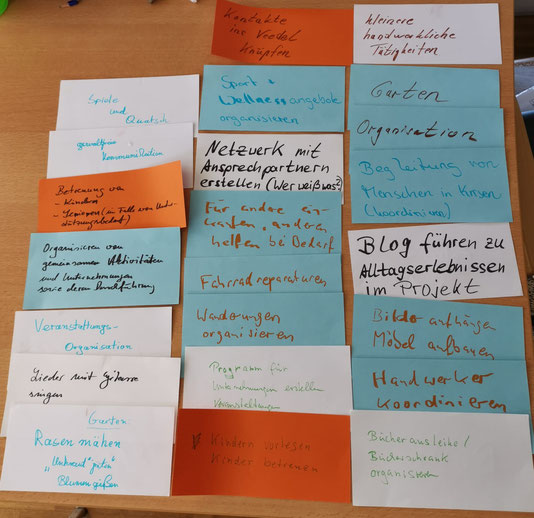 Spiele
und
Quatsch
gewaltfreie
Kommunikation
Betreuung von
- Kindern
- Senioren (im Falle von Unter-
stützungsbedarf)
Organisieren von
gemeinsamen Aktivitäten
und Unternehmungen
sowie deren Durchführung
Veranstaltungs-
Organisation
Lieder mit Gitarre
singen
Garten:
Rasen mähen
"Unkraut" jäten
Blumen gießen
Kontakte
ins Veedel
Knüpfen
Sport &
Wellnessangebote
organisieren
Netzwerk mit
Ansprechpartnern
erstellen (Wer weiß was?)
Für andere ein-
kaufen, anderen
helfen bei Bedarf
Fahrradreparaturen
Wanderungen
organisieren
Programm für
Unternehmungen erstellen
Veranstaltungen
Kindern vorlesen
Kinder betreuen
kleinere
handwerkliche
Tätigkeiten
Garten
Organisation
Begleitung von
Menschen in Krisen
(koordinieren)
Blog führen zu
Alltagserlebnissen
im Projekt
Bilder aufhängen
Möbel aufbauen
Handwerker
koordinieren
Bücherausleihe/
Bücherschrank
organisieren